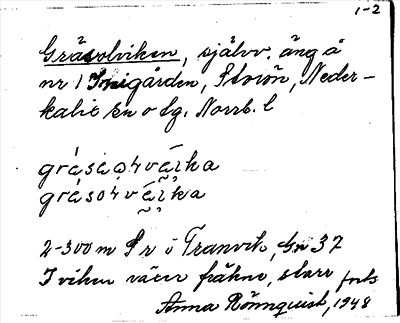 1-2
Gräsolviken, självv. äng å
nr 1 Innigården, Storön, Neder-
kalix sn o tg. Norrb. l
gräsåo4váika
gräso4váika
2-300 m Sr ö Tranvik, Gn 37
I viken växer fräken, starr forts
Anna Rönnquist, 1948